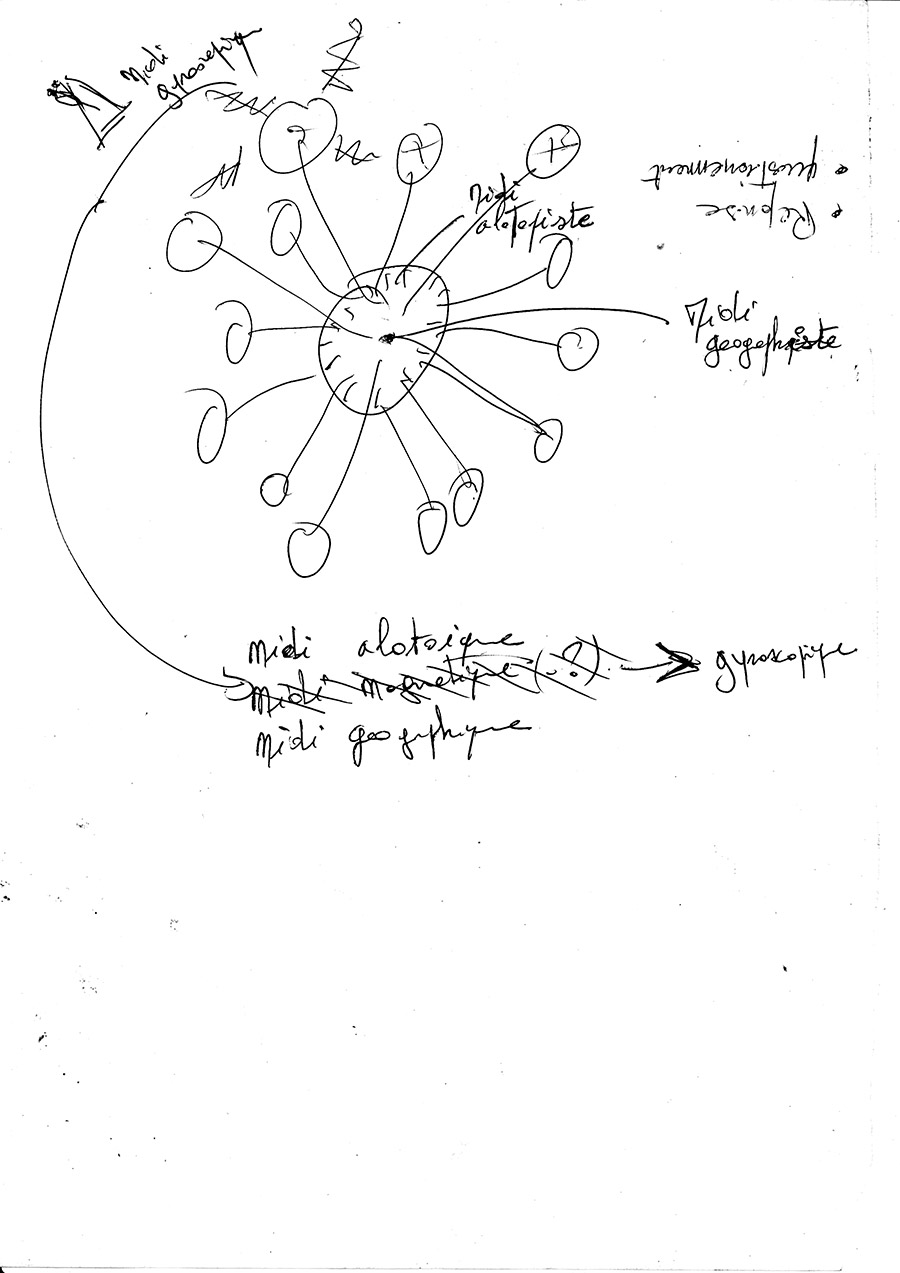 Midi
gyroscopique
Midi
alotopiste
• questionnement
• Réponse
Midi
geographiste
Midi alotoique
Midi magnetique (?) gyroscopique
Midi geographique